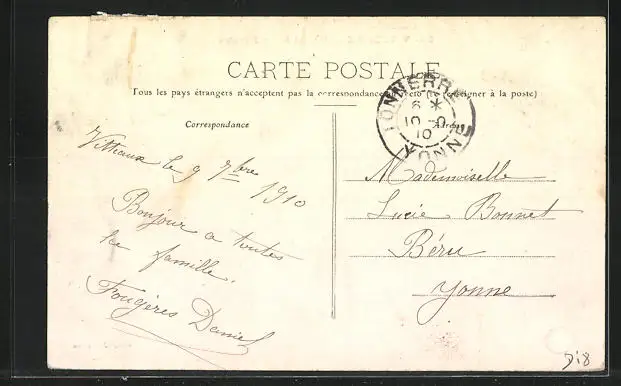 CARTE POSTALE
Tous les pays étrangers n'acceptent pas la correspondance au recto (se renseigner à la poste)
Correspondance
Adresse
TONNERRE
6 *
10 - 9
10
YONNE
Vitteaux le 9 7bre 1910
Bonjour a toutes
la famille.
Fougères Daniel
Mademoiselle
Lucie Bonnet
Béru
Yonne